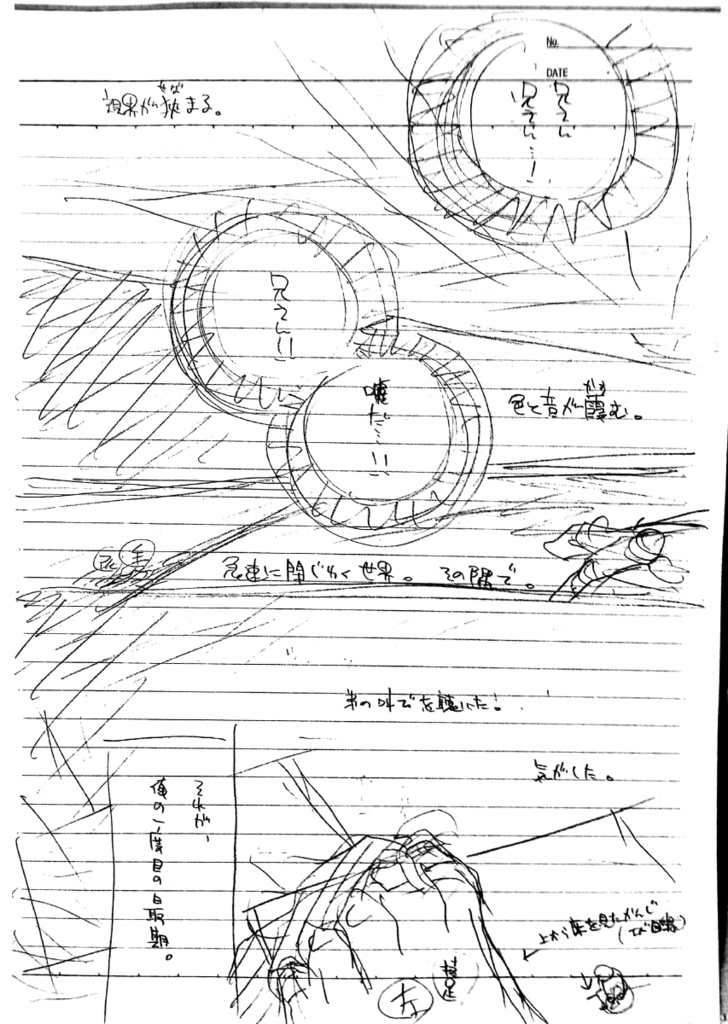 No.
DATE
兄さん
兄さん…!
せば
視界が狭まる。
兄さん!!
嘘だ…!!
かす
色と音が霞む。
急速に閉じゆく世界。その隅で。
弟の叫びを聴いた!
気がした。
それが、
俺の一度目の最期。
上から弟を見たかんじ